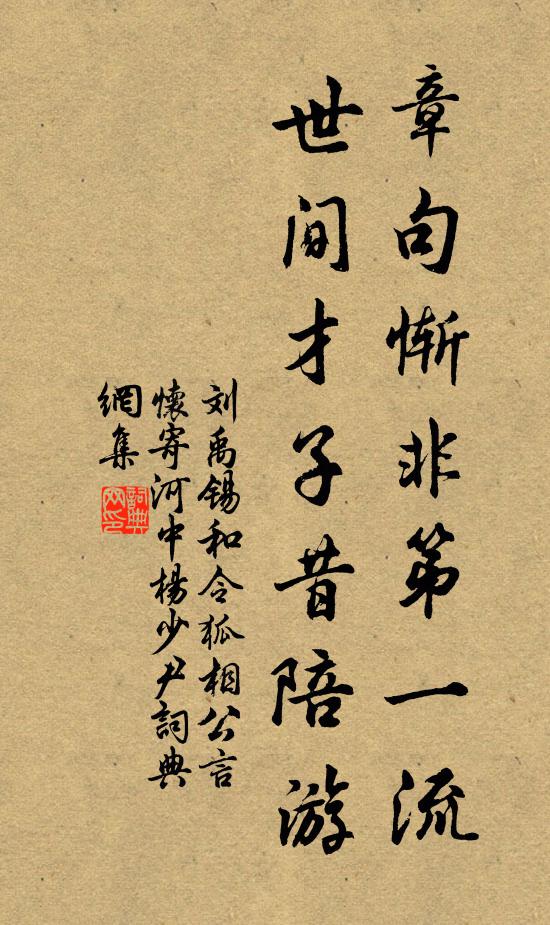 章句惭非第一流
世间才子昔陪游
刘禹锡和令狐相公言
懷寄河中楊少尹詞典
網集
詞典
网印